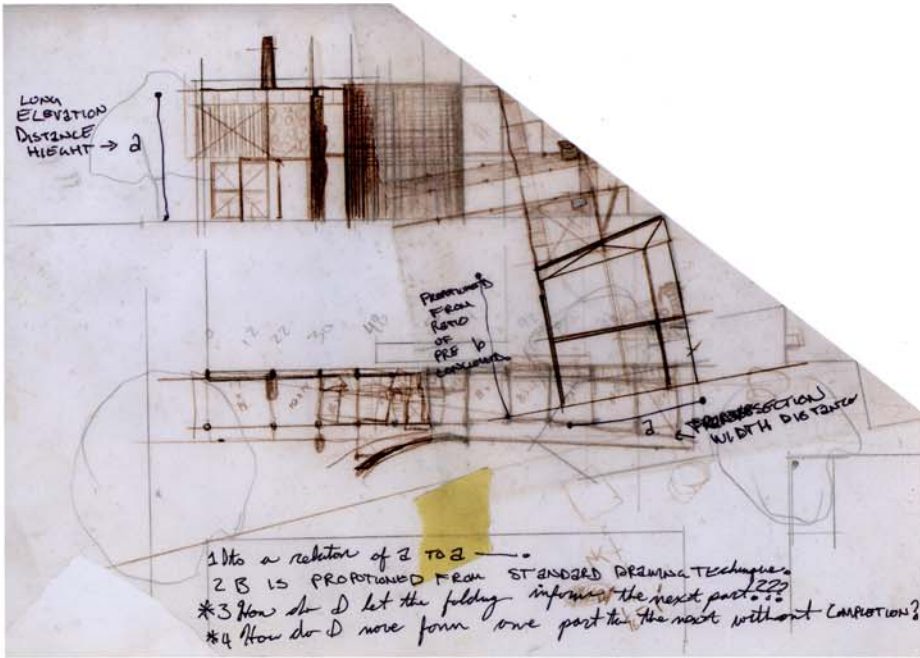 LONG
ELEVATION
DISTANCE
HIEGHT → a
PROPOTIONED
FROM
RATIO
OF
PRE b
0 12 22 30 48
a
SECTION
WIDTH DISTANCE
1 Its a relation of a TO a
2 B IS PROPOTIONED FROM STANDARD DRAWING TEchnique.
*3 How do I let the folding inform the next part???
*4 How do I move form one part to the next without COMPLETION?